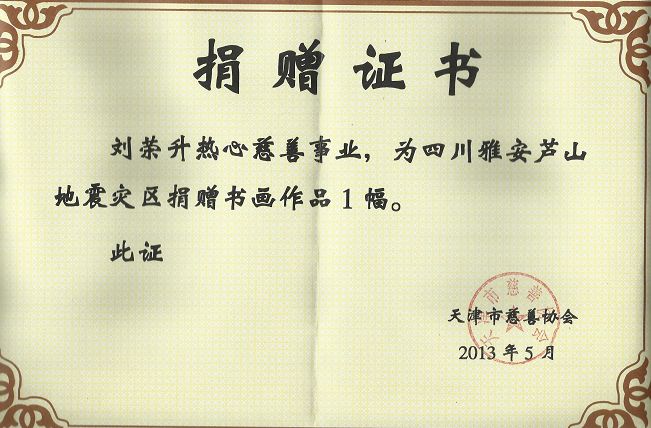 捐赠证书
刘荣升热心慈善事业，为四川雅安芦山
地震灾区捐赠书画作品1幅。
此证
天津市慈善协会
2013年5月
天津市慈善协会